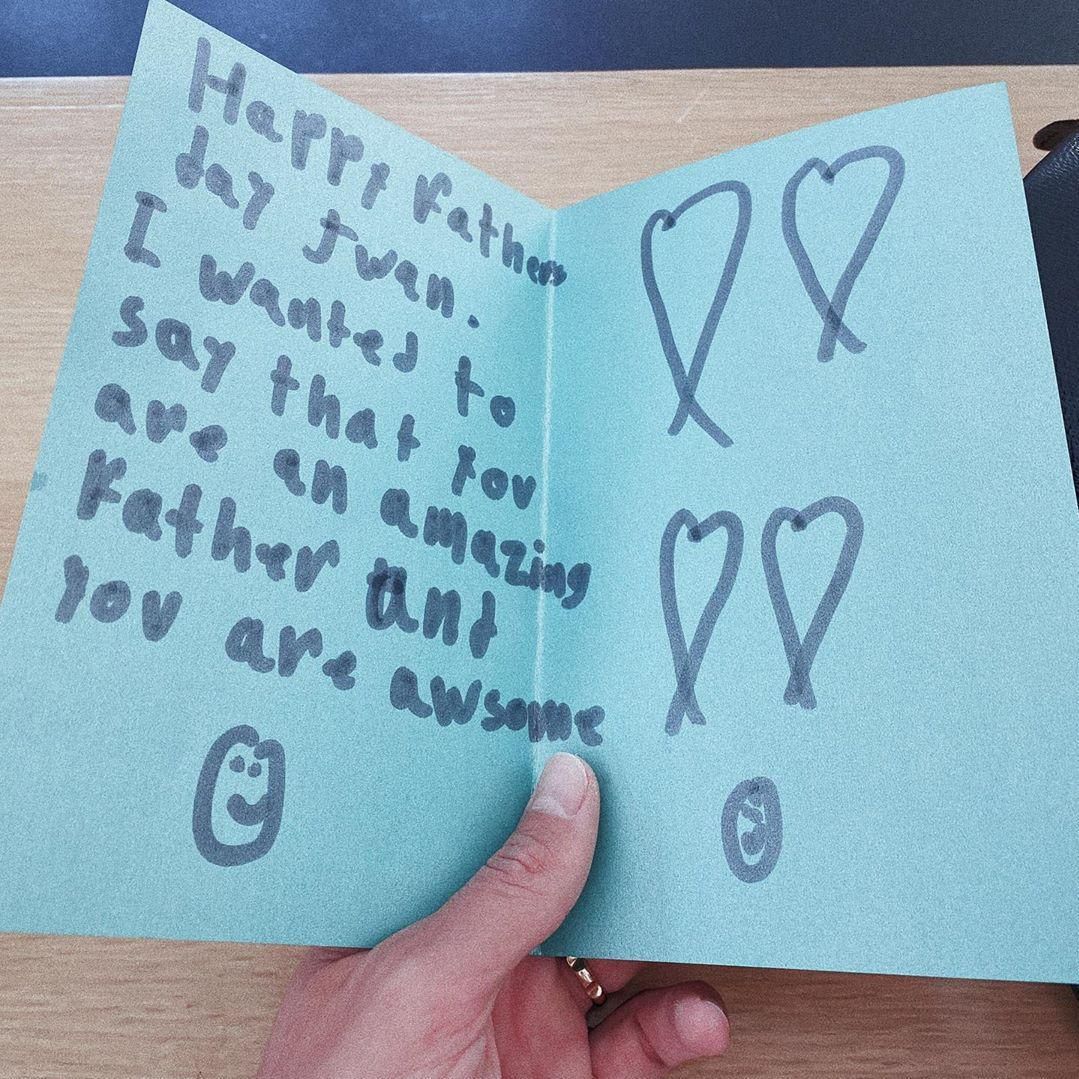 Happy Fathers
day Jwan.
I wanted to
say that you
are an amazing
Father and
you are awsome